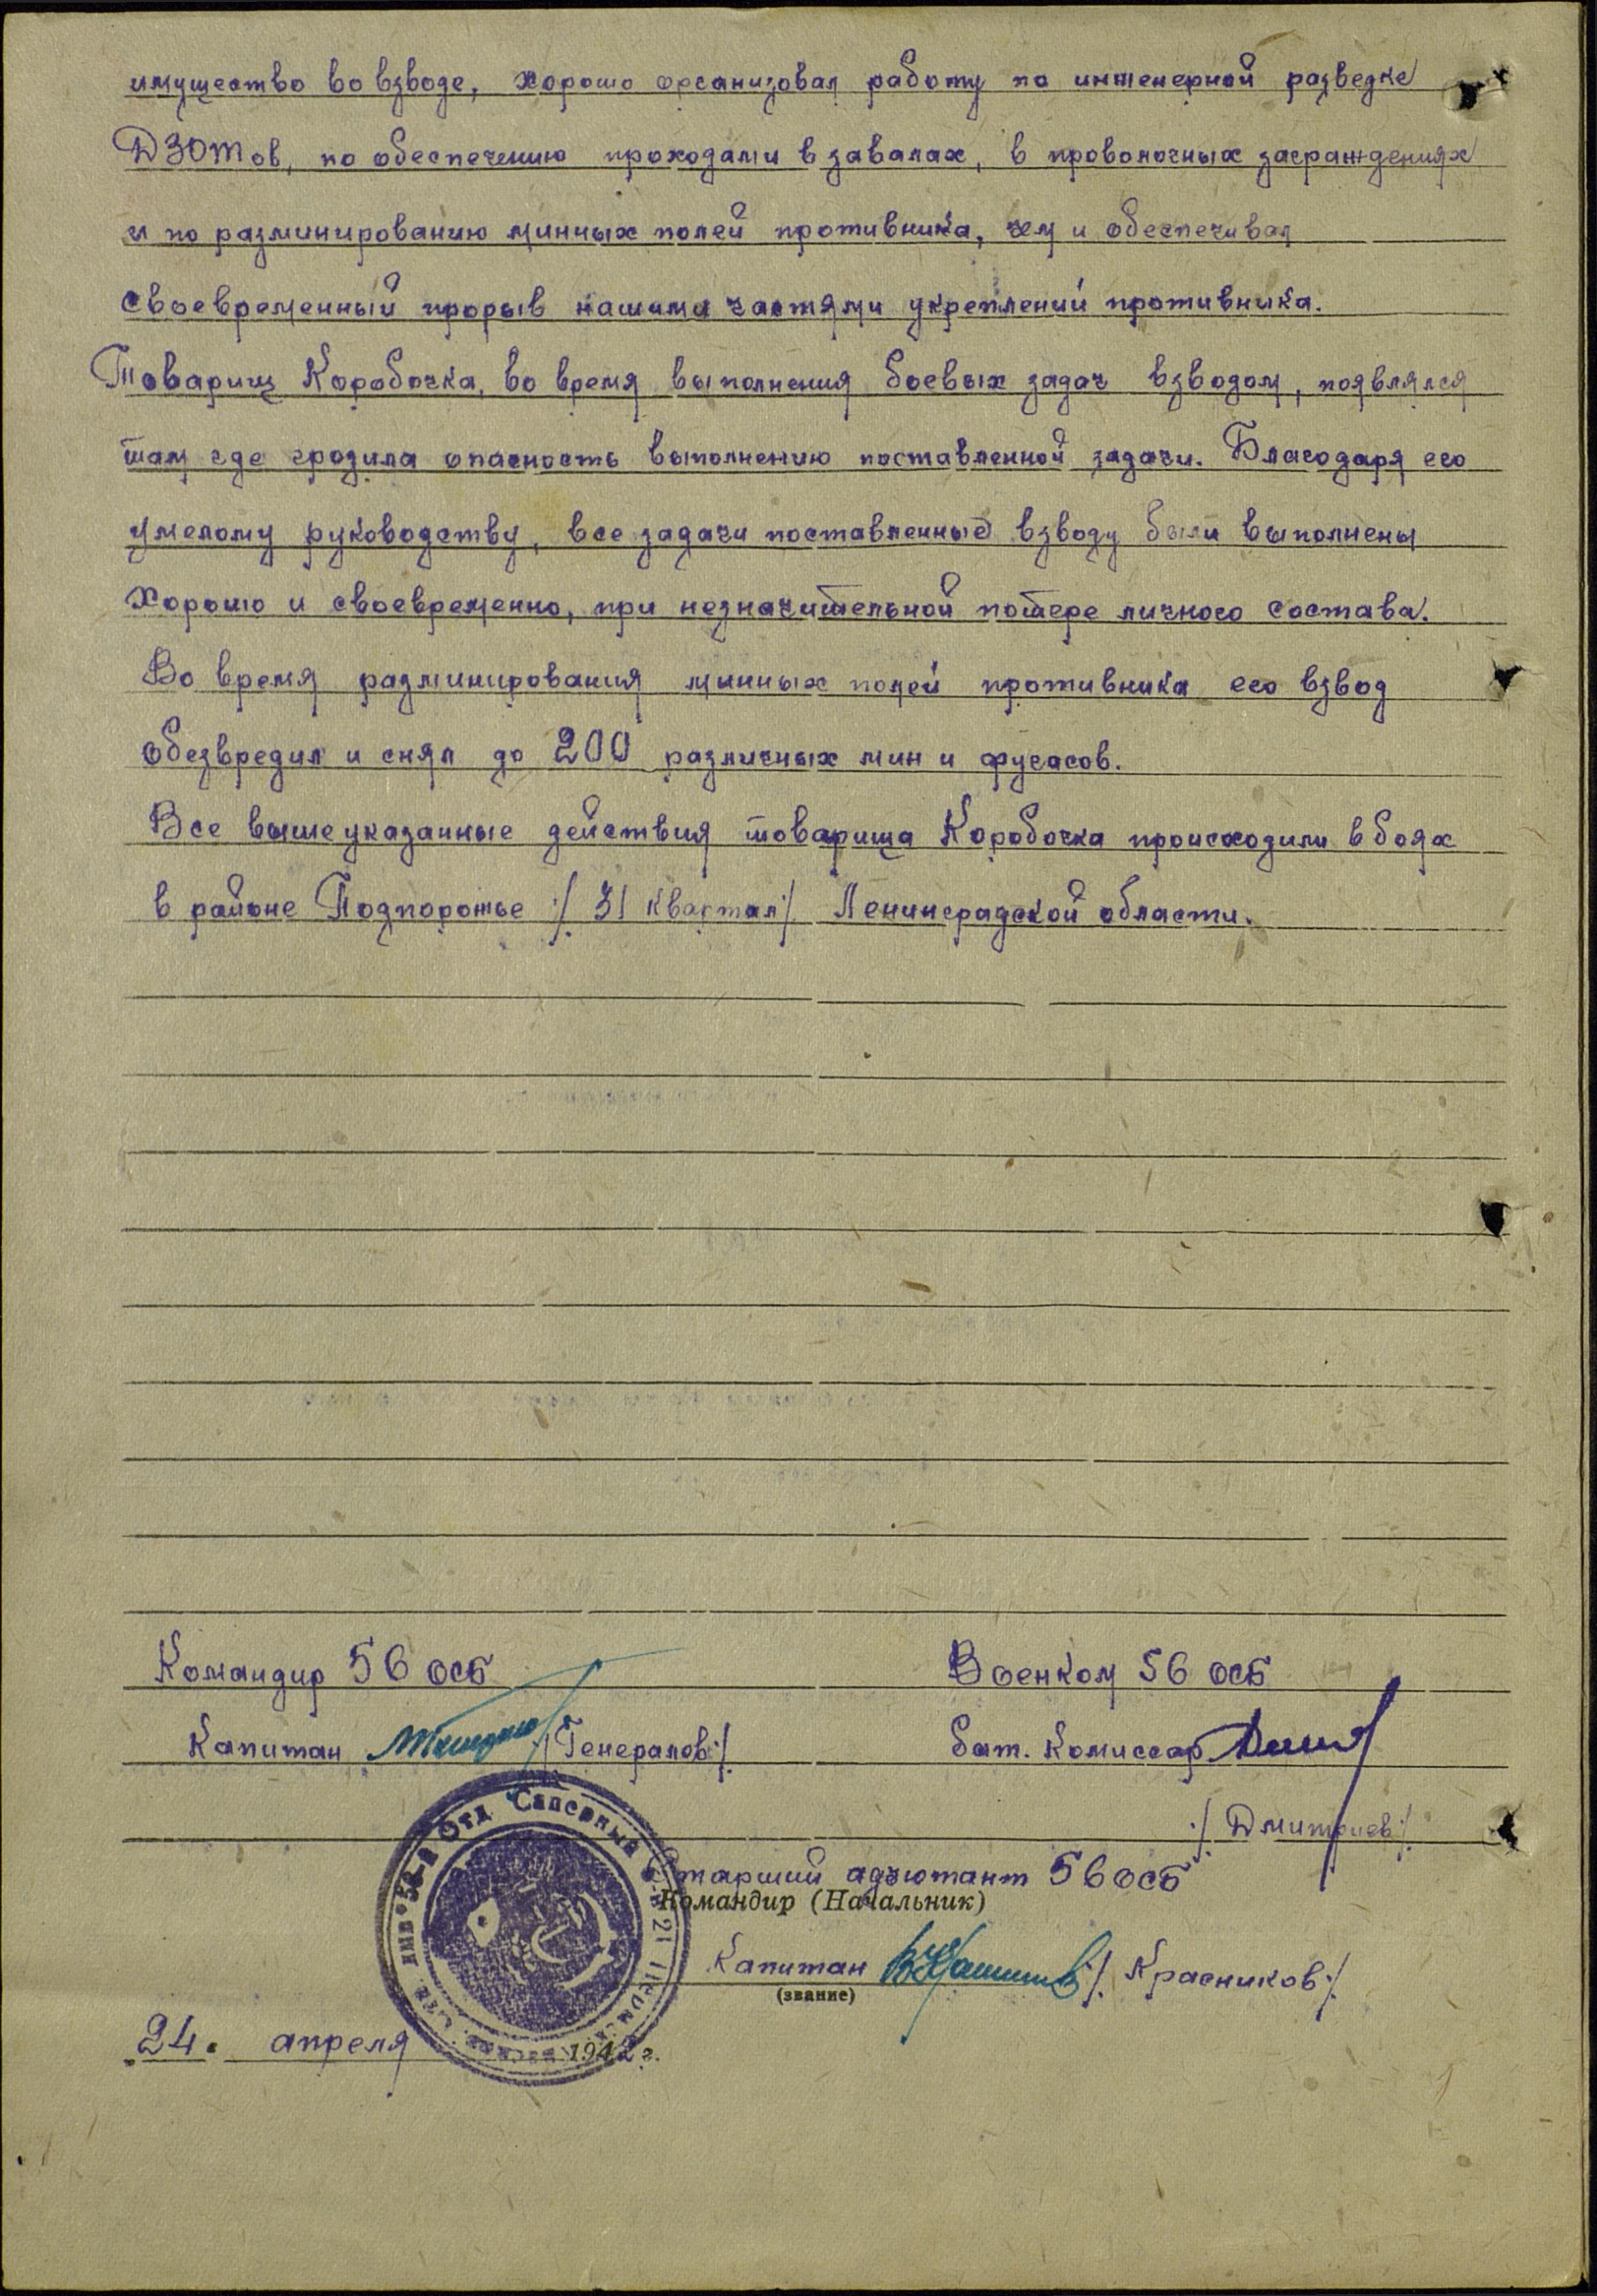 имущество во взводе, хорошо организовал работу по инженерной разведке
ДЗОТов, по обеспечению проходами в завалах, в проволочных заграждениях
и по разминированию минных полей противника, чем и обеспечивал
своевременный прорыв нашими частями укреплений противника.
Товарищ Коробочка, во время выполнения боевых задач взводом, появлялся
там где грозила опасность выполнению поставленной задачи. Благодаря его
умелому руководству, все задачи поставленные взводу были выполнены
хорошо и своевременно, при незначительной потере личного состава.
Во время разминирования минных полей противника его взвод
обезвредил и снял до 200 различных мин и фугасов.
Все вышеуказанные действия товарища Коробочка происходили в боях
в районе Подпорожье /31 квартал/ Ленинградской области.
Командир 56 ОСБ
Военком 56 ОСБ
Капитан /Генералов/
бат. комиссар
/Дмитриев/
Отд Саперный
Старший адъютант 56 ОСБ
Командир (Начальник)
Капитан /Красников/
(звание)
24. апреля 1942 г.